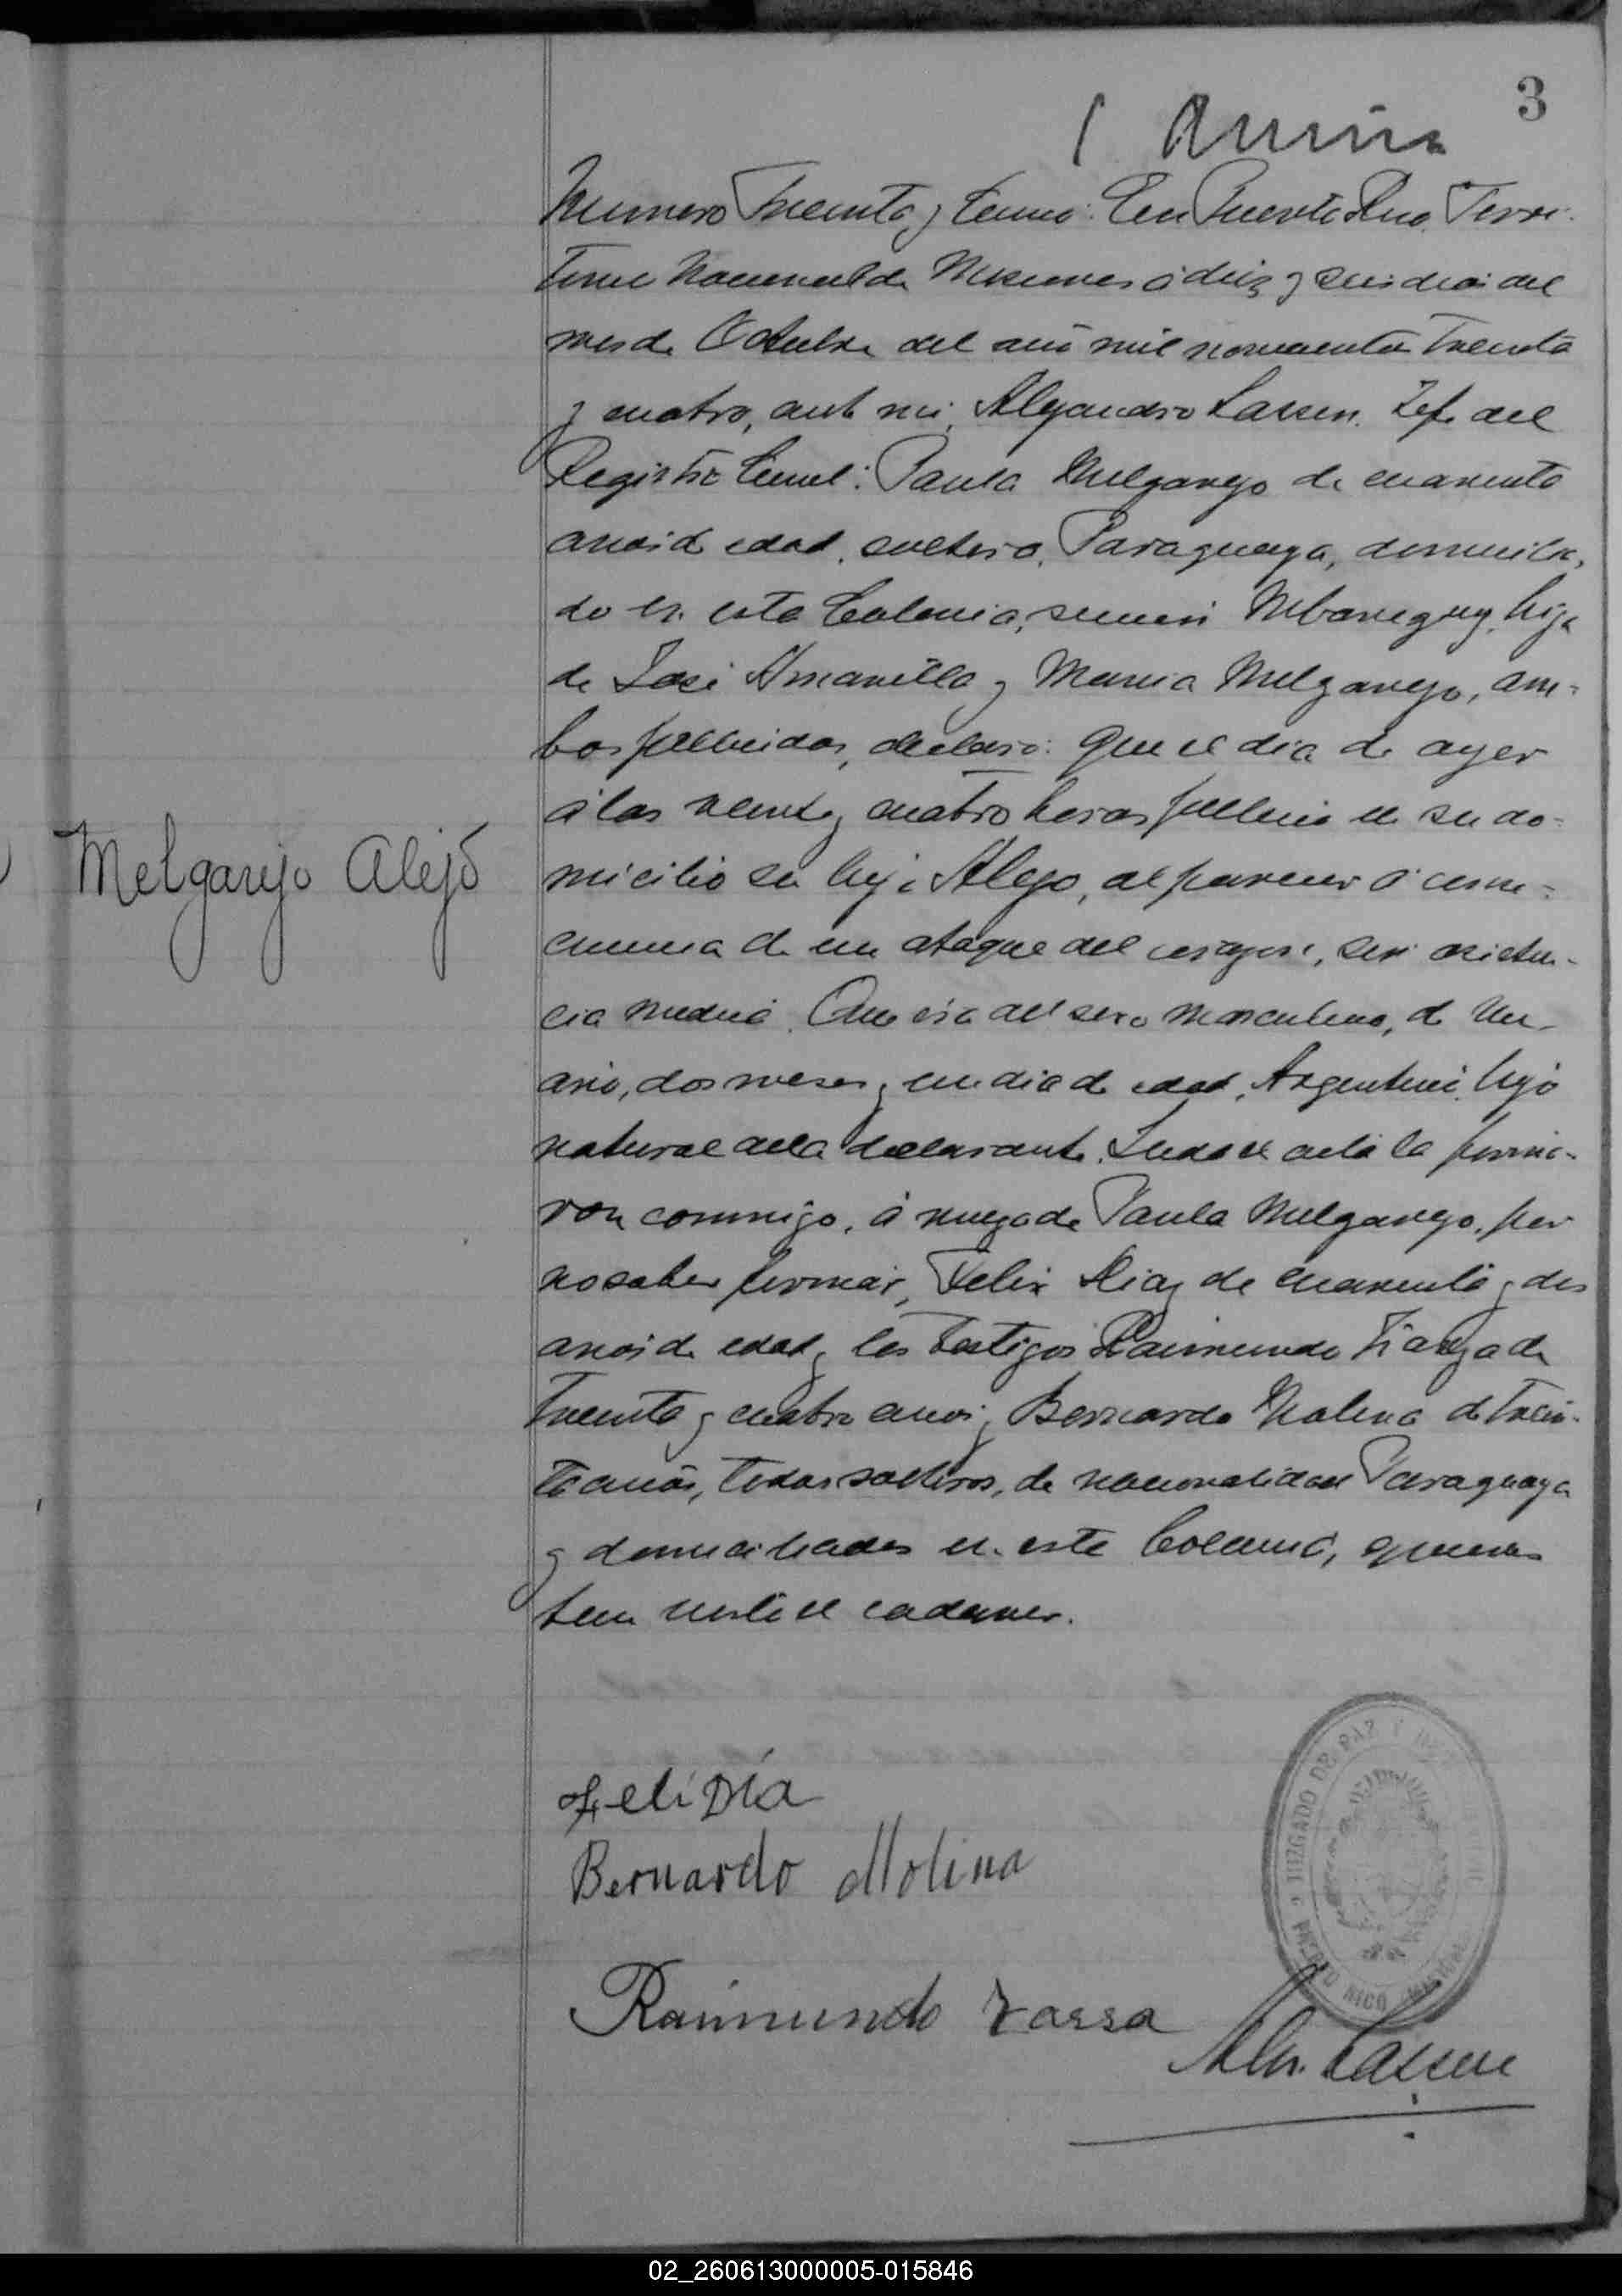 3
1
Numero Treinta y Cinco: En Puerto Rico, Terri-
torio Nacional de Misiones á diez y seis dias del
mes de Octubre del año mil novecientos treinta
y cuatro, ante mi, Alejandro Lassen, Jefe del
Registro Civil: Paula Melgarejo de cuarenta
años de edad, soltera, Paraguaya, domicilia-
do en esta Colonia, hija
de José Amarilla y Maria Melgarejo, am-
bos fallecidos, declaró: Que el dia de ayer
á las veinte y cuatro horas falleció en su do-
micilio su hijo Alejo, al parecer á conse-
cuencia de un ataque del corazon, sin asisten-
cia medica. Que era del sexo masculino, de un
año, dos meses y un dia de edad, Argentino, hijo
natural de la declarante. Leida el acta la firma-
ron conmigo, á ruego de Paula Melgarejo, por
no saber firmar, Felix Diaz de cuarenta y dos
años de edad y los testigos Raimundo de
treinta y cuatro años y Bernardo Molina de trein-
ta años, todos solteros, de nacionalidad Paraguaya
y domiciliados en esta Colonia, quienes
han visto el cadaver.
Melgarejo Alejo
Feli Dia
Bernardo Molina
Raimundo
Alej. Lassen
JUZGADO DE PAZ Y
PUERTO RICO
02_260613000005-015846